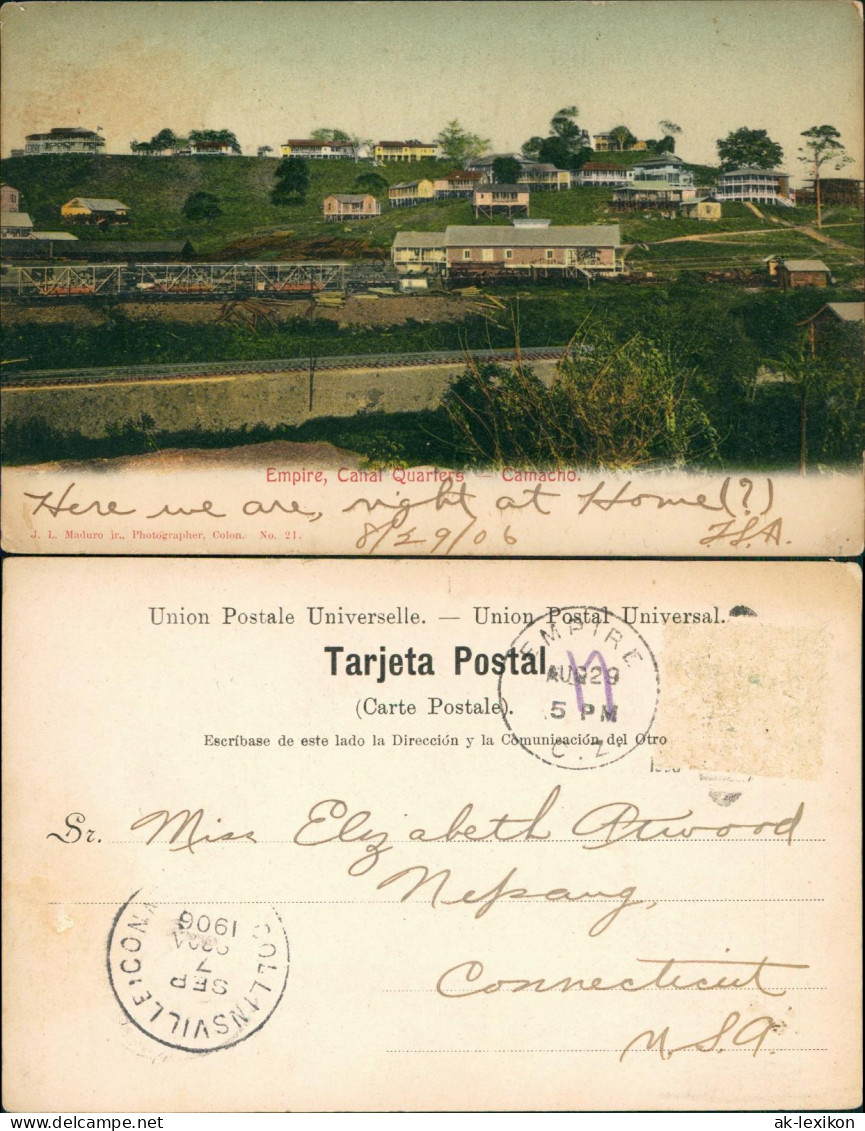 Empire, Canal Quarters — Camacho.
Here we are, right at Home(?)
J. L. Maduro jr., Photographer, Colon. No. 21.
8/29/06
Union Postale Universelle. — Union Postal Universal.
Tarjeta Postal
(Carte Postale).
Escríbase de este lado la Dirección y la Comunicación del Otro
EMPIRE
AUG 29
5 PM
C.Z.
Sr. Miss Elizabeth Atwood
Nepaug,
Connecticut
U.S.A.
COLLINSVILLE CONN
SEP
7
1906
ak-lexikon